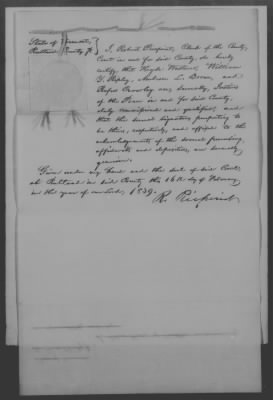 State of Vermont,
Rutland County ss
I, Robert Pierpoint, Clerk of the County
Court in and for said County, do hereby
certify, that William
Y. Ripley, Andrew L. Brown, and
Rufus Crowley are severally, Justices
of the Peace in and for said County,
duly commissioned and qualified; and
that the several signatures purporting to
be theirs, respectively, and affixed to the
acknowledgements of the several foregoing
affidavits and depositions, are severally
genuine.
Given under my hand and the seal of said Court,
at Rutland in said County this 16th day of February,
in the year of our Lord, 1839.
R. Pierpoint